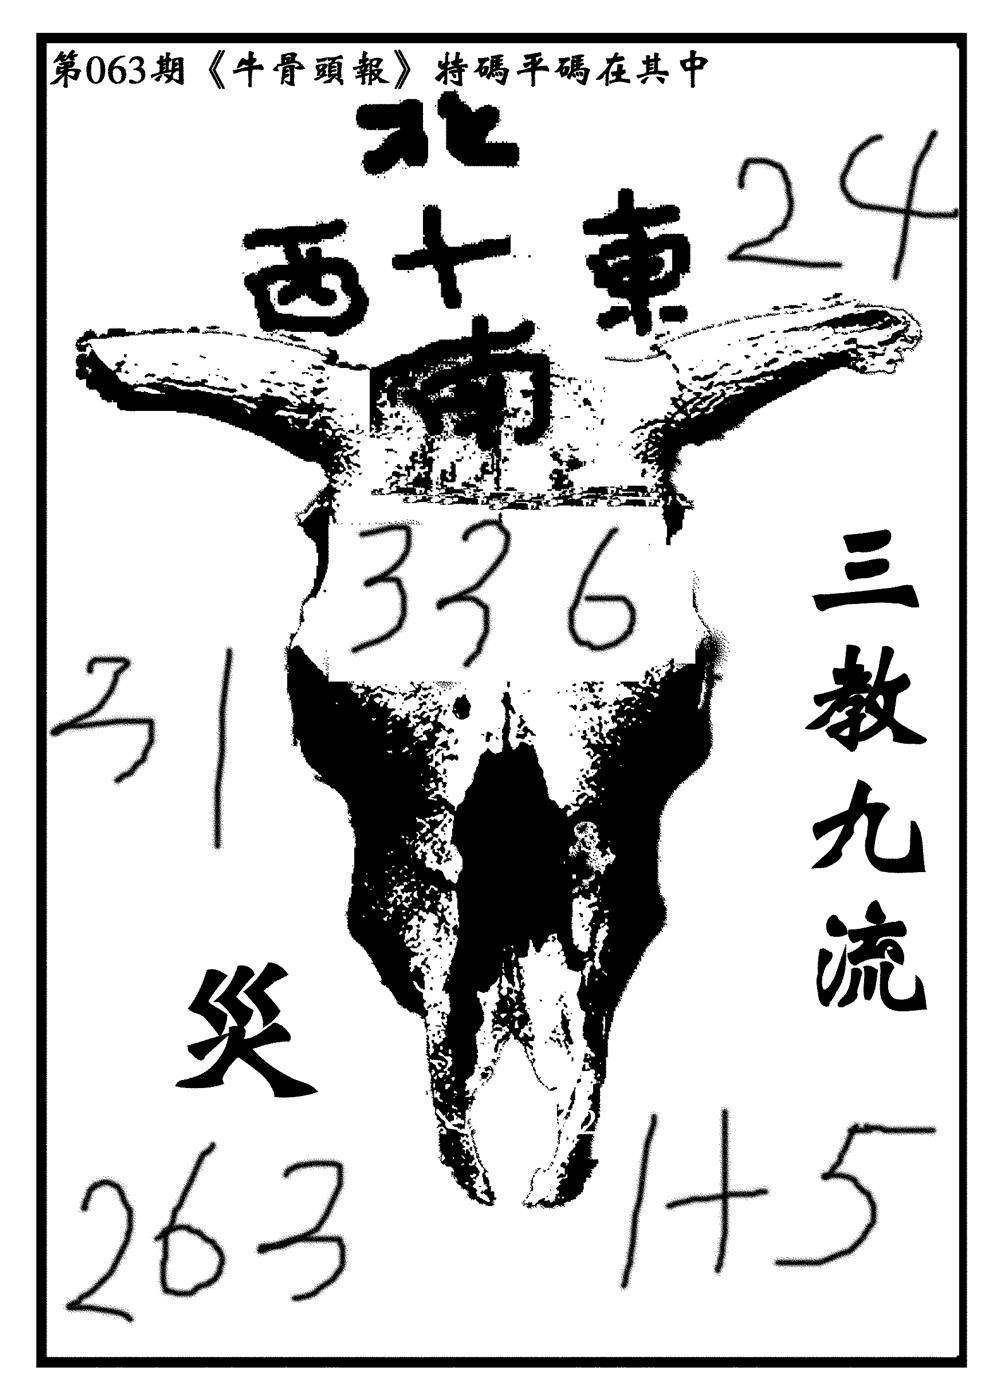 第063期《牛骨頭報》特碼平碼在其中
北
西十東
南
24
336
31
三教九流
災
263
1+5